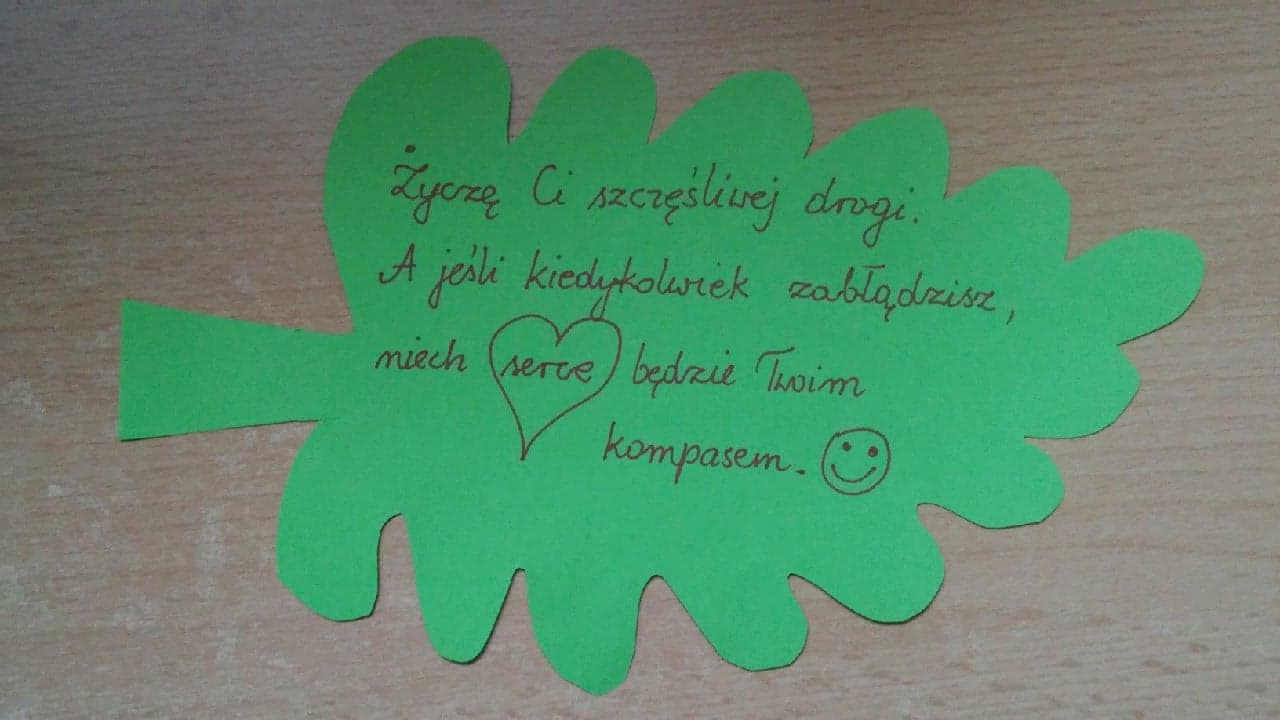 Życzę Ci szczęśliwej drogi.
A jeśli kiedykolwiek zabłądzisz,
niech serce będzie Twoim
kompasem.